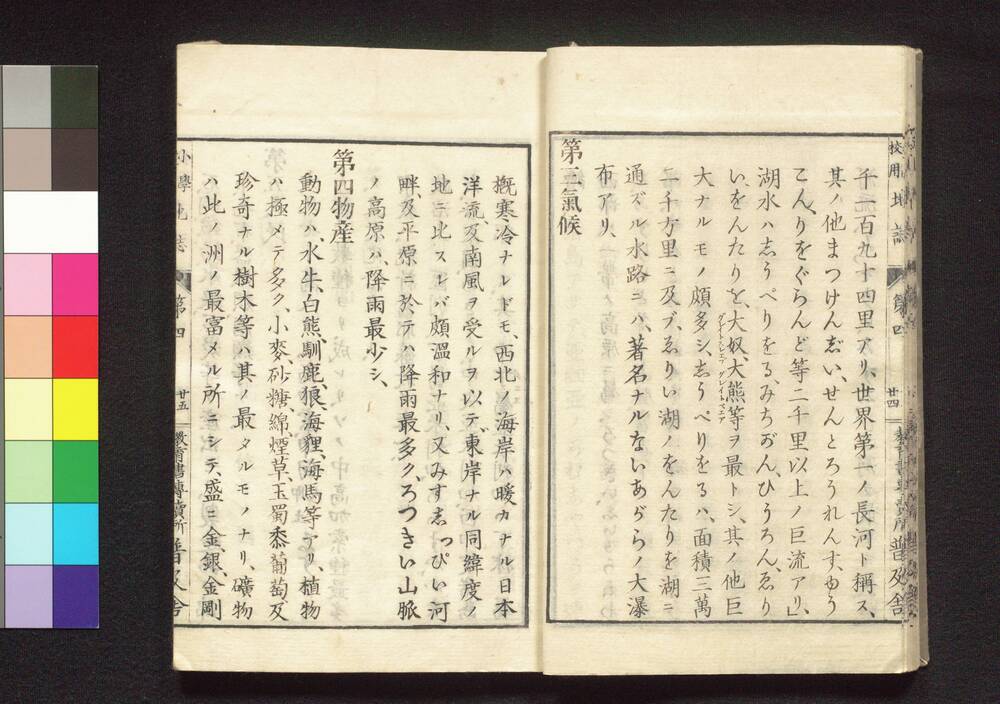 千一百九十四里アリ、世界第一ノ長河ト稱ス、
其ノ他まつけんぢい、せんとろうれんす、ゆう
こん、りをぐらんど等二千里以上ノ巨流アリ」、
湖水ハしうぺりをる、みちがん、ひうろん、ゑり
い、をんたりを、大奴、大熊等ヲ最トシ、其ノ他巨
グレイトスレエブ グレイトベエア
大ナルモノ頗多シ、しうぺりをるハ、面積三萬
二千方里ニ及ブ、ゑりい湖ノをんたりを湖ニ
通ズル水路ニハ、著名ナルないあがらノ大瀑
布アリ、
第三氣候
概寒冷ナレドモ、西北ノ海岸ハ暖カナル日本
洋流、及南風ヲ受ルヲ以テ、東岸ナル同緯度ノ
地ニ比スレバ頗溫和ナリ、又みすしつぴい河
畔、及平原ニ於テハ降雨最多ク、ろつきい山脈
ノ高原ハ、降雨最少シ、
第四物產
動物ハ、水牛、白熊、馴鹿、狼、海狸、海馬等アリ、植物
ハ極メテ多ク、小麥、砂糖、綿、煙草、玉蜀黍、葡萄及
珍奇ナル樹木等ハ其ノ最タルモノナリ、礦物
ハ此ノ洲ノ最富メル所ニシテ、盛ニ金、銀、金剛
校用地誌
第四
廿四
普及舍
小學地誌
第四
廿五
教育書專賣所 普及舍